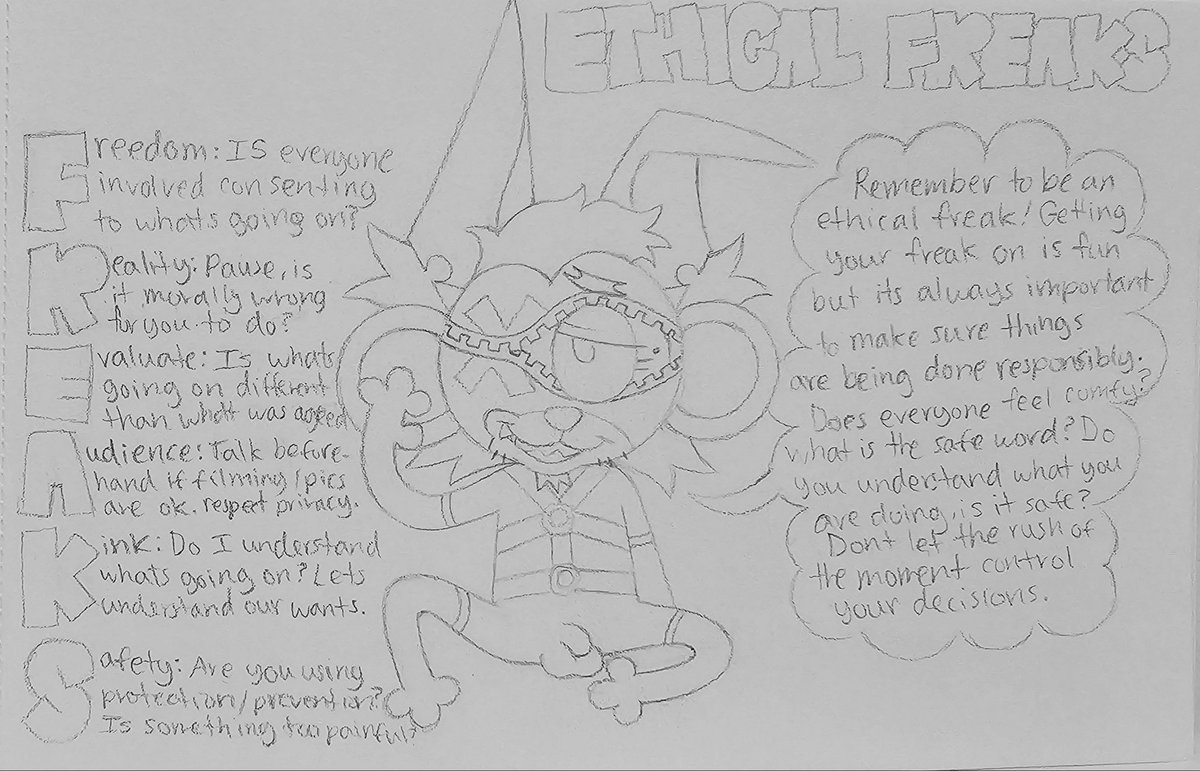 ETHICAL FREAKS
Freedom: IS everyone
involved consenting
to whats going on?
Reality: Pause, is
it morally wrong
for you to do?
Evaluate: Is whats
going on different
than what was agreed
Audience: Talk before-
hand if filming/pics
are ok. respect privacy.
Kink: Do I understand
whats going on? Lets
understand our wants.
Safety: Are you using
protection/prevention?
Is something too painful?
Remember to be an
ethical freak! Getting
your freak on is fun
but its always important
to make sure things
are being done responsibly.
Does everyone feel comfy?
what is the safe word? Do
you understand what you
are doing, is it safe?
Dont let the rush of
the moment control
your decisions.